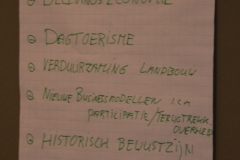 BELEVINGSECONOMIE
DAGTOERISME
VERDUURZAMING LANDBOUW
NIEUWE BUSINESSMODELLEN ICM
PARTICIPATIE/TERUGTREKK.
OVERHEID
HISTORISCH BEWUSTZIJN